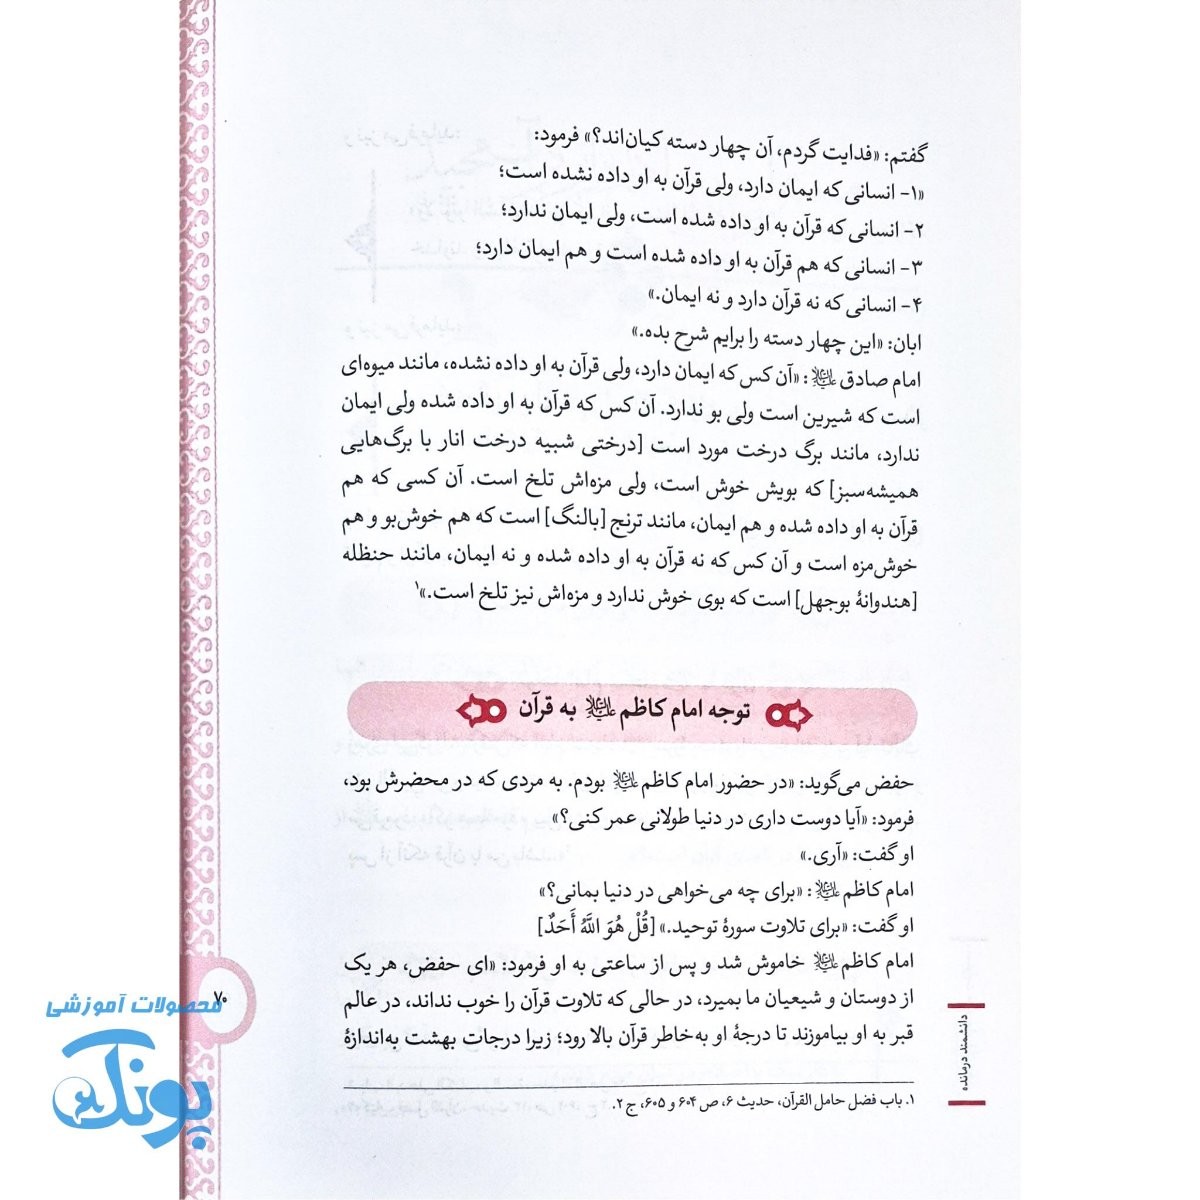 گفتم: «فدایت گردم، آن چهار دسته کیان‌اند؟» فرمود:
«۱- انسانی که ایمان دارد، ولی قرآن به او داده نشده است؛
۲- انسانی که قرآن به او داده شده است، ولی ایمان ندارد؛
۳- انسانی که هم قرآن به او داده شده است و هم ایمان دارد؛
۴- انسانی که نه قرآن دارد و نه ایمان.»
ابان: «این چهار دسته را برایم شرح بده.»
امام صادق علیه‌السلام: «آن کس که ایمان دارد، ولی قرآن به او داده نشده، مانند میوه‌ای
است که شیرین است ولی بو ندارد. آن کس که قرآن به او داده شده ولی ایمان
ندارد، مانند برگ درخت مورد است [درختی شبیه درخت انار با برگ‌هایی
همیشه‌سبز] که بویش خوش است، ولی مزه‌اش تلخ است. آن کسی که هم
قرآن به او داده شده و هم ایمان، مانند ترنج [بالنگ] است که هم خوش‌بو و هم
خوش‌مزه است و آن کس که نه قرآن به او داده شده و نه ایمان، مانند حنظله
[هندوانهٔ بوجهل] است که بوی خوش ندارد و مزه‌اش نیز تلخ است.»۱
توجه امام کاظم علیه‌السلام به قرآن
حفض می‌گوید: «در حضور امام کاظم علیه‌السلام بودم. به مردی که در محضرش بود،
فرمود: «آیا دوست داری در دنیا طولانی عمر کنی؟»
او گفت: «آری.»
امام کاظم علیه‌السلام: «برای چه می‌خواهی در دنیا بمانی؟»
او گفت: «برای تلاوت سورهٔ توحید.» [قُلْ هُوَ اللَّهُ أَحَدٌ]
امام کاظم علیه‌السلام خاموش شد و پس از ساعتی به او فرمود: «ای حفض، هر یک
از دوستان و شیعیان ما بمیرد، در حالی که تلاوت قرآن را خوب نداند، در عالم
قبر به او بیاموزند تا درجهٔ او به‌خاطر قرآن بالا رود؛ زیرا درجات بهشت به‌اندازهٔ
۱. باب فضل حامل القرآن، حدیث ۶، ص ۶۰۴ و ۶۰۵، ج ۲.
دانشمند درمانده
۷۰
محصولات آموزشی
پونک